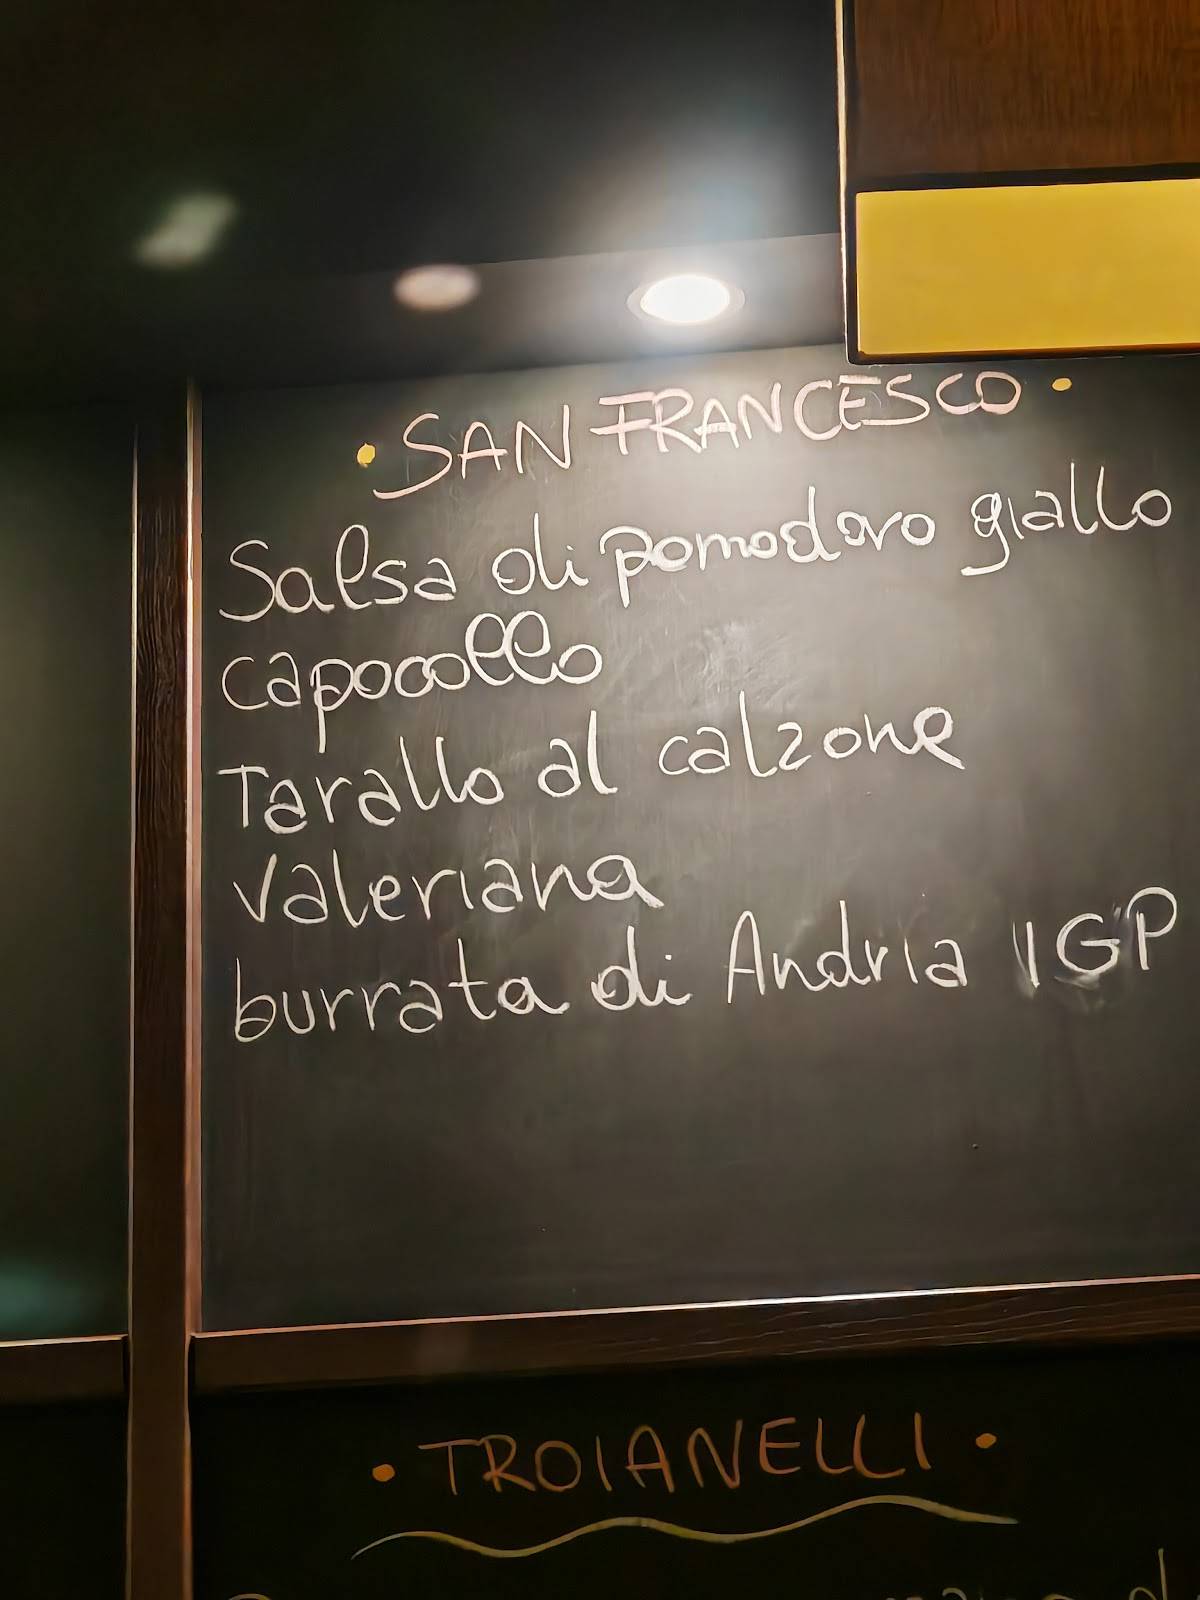 • SAN FRANCESCO •
Salsa di pomodoro giallo
capocollo
Tarallo al calzone
Valeriana
burrata di Andria IGP
• TROIANELLI •